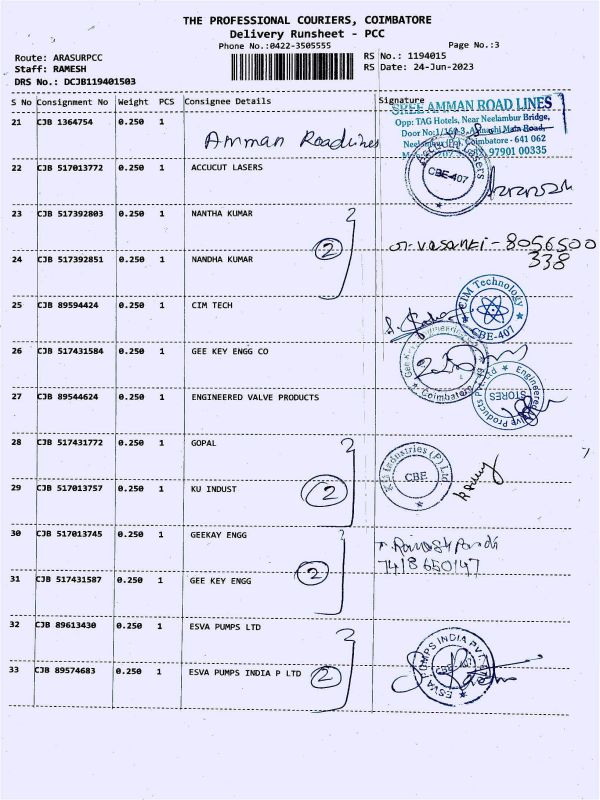 THE PROFESSIONAL COURIERS, COIMBATORE
Delivery Runsheet - PCC
Phone No.:0422-3505555
Page No.:3
Route: ARASURPCC
RS No.: 1194015
Staff: RAMESH
RS Date: 24-Jun-2023
DRS No.: DCJB119401503
S No Consignment No Weight PCS Consignee Details Signature
21 CJB 1364754 0.250 1
Amman Roadlines
SREE AMMAN ROAD LINES
Opp: TAG Hotels, Near Neelambur Bridge,
Coimbatore - 641 062
97901 00335
22 CJB 517013772 0.250 1 ACCUCUT LASERS
Lasers
CBE-407
23 CJB 517392803 0.250 1 NANTHA KUMAR
2
vasanti - 8056500
338
24 CJB 517392851 0.250 1 NANDHA KUMAR
25 CJB 89594424 0.250 1 CIM TECH
CIM Technology
CBE-407
26 CJB 517431584 0.250 1 GEE KEY ENGG CO
Coimbatore
27 CJB 89544624 0.250 1 ENGINEERED VALVE PRODUCTS
Engineered Valve Products Pvt Ltd
STORES
28 CJB 517431772 0.250 1 GOPAL
KU Industries (P) Ltd
CBE
29 CJB 517013757 0.250 1 KU INDUST
2
30 CJB 517013745 0.250 1 GEEKAY ENGG
7418650147
31 CJB 517431587 0.250 1 GEE KEY ENGG
2
32 CJB 89613430 0.250 1 ESVA PUMPS LTD
ESVA PUMPS INDIA PVT LTD
33 CJB 89574683 0.250 1 ESVA PUMPS INDIA P LTD
2